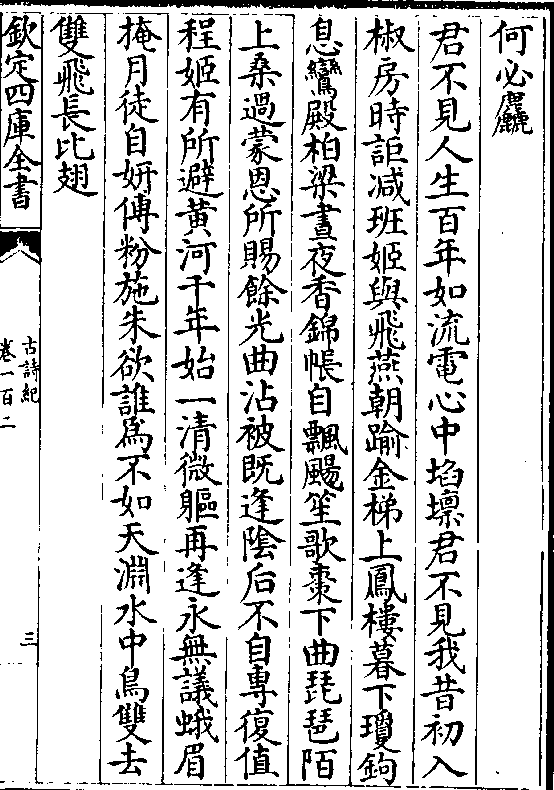 何必麤麤
君不見人生百年如流電心中埳壈君不見我昔初入
椒房時詎減班姬與飛燕朝踰金梯上鳳樓暮下瓊鉤
息鸞殿柏梁晝夜香錦帳自飄颺笙歌棗下曲琵琶陌
上桑過蒙恩所賜餘光曲沾被既逢陰后不自專復值
程姬有所避黃河千年始一清微軀再逢永無議蛾眉
掩月徒自妍傅粉施朱欲誰為不如天淵水中鳥雙去
雙飛長比翅
欽定四庫全書
古詩紀
卷一百二
三